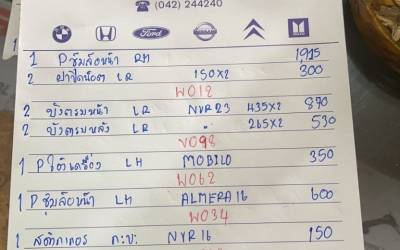 (042) 244240
Ford NISSAN ISUZU
1 P ซุ้มล้อหน้า RH 1915
2 ฝาปิดน๊อต LR 150X2 300
W012
2 บังตรมหน้า LR NVR23 435X2 870
2 บังตรมหลัง LR " 265X2 530
V098
1 P ใต้เครื่อง LH MOBILO 350
W062
1 P ซุ้มล้อหน้า LH ALMERA 16 600
W034
1 สติกเกอร์ กะบะ NYR 16 150